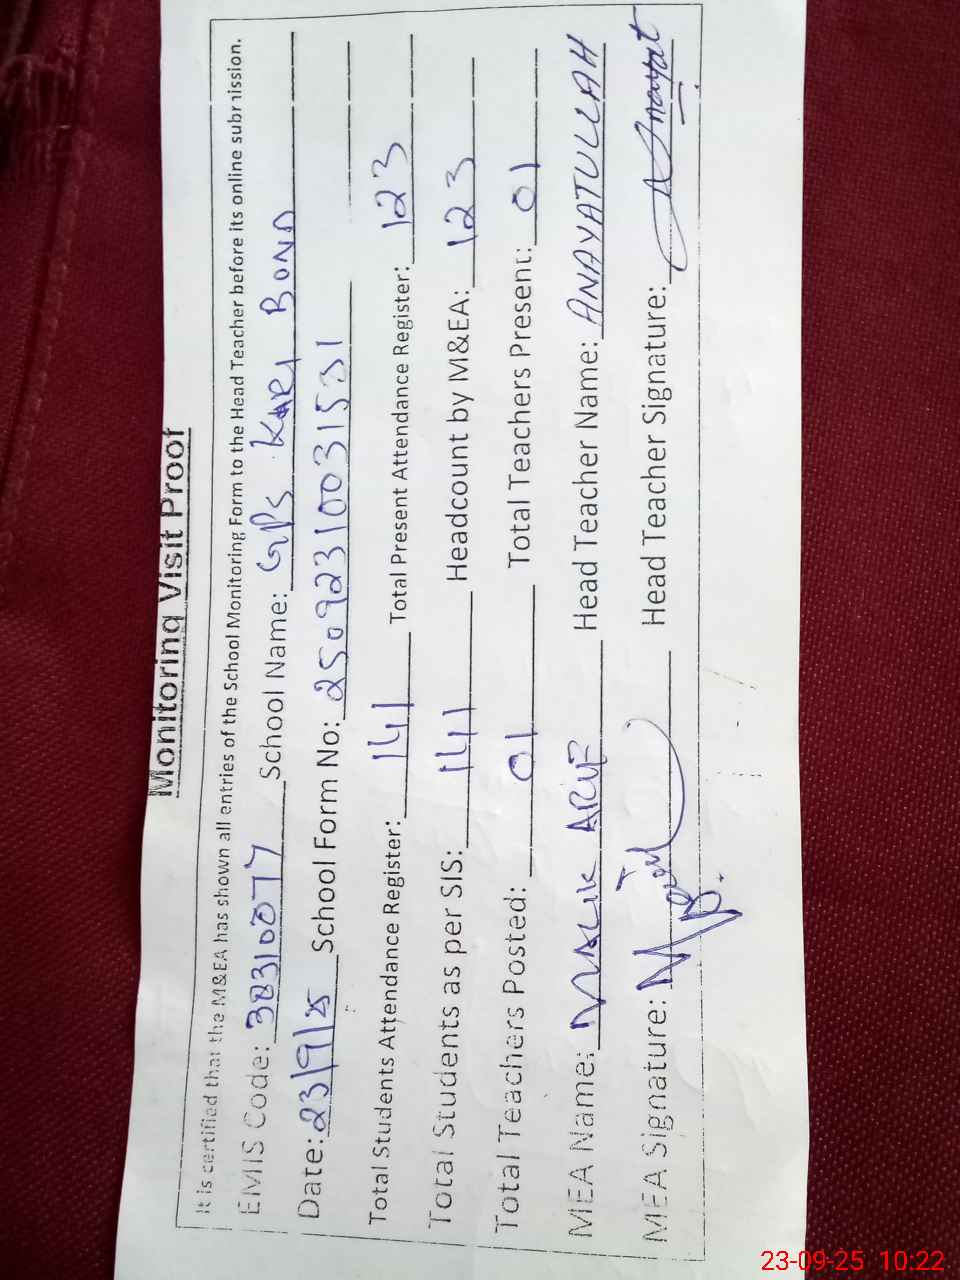 Monitoring Visit Proof
It is certified that the M&EA has shown all entries of the School Monitoring Form to the Head Teacher before its online submission.
EMIS Code: 38310077 School Name: GPS KARI BOND
Date: 23/9/25 School Form No: 250923100315
Total Students Attendance Register: 141 Total Present Attendance Register: 123
Total Students as per SIS: 141 Headcount by M&EA: 123
Total Teachers Posted: 01 Total Teachers Present: 01
MEA Name: MALIK Head Teacher Name: ANAYATULLAH
MEA Signature: Head Teacher Signature: Anayat
23-09-25 10:22